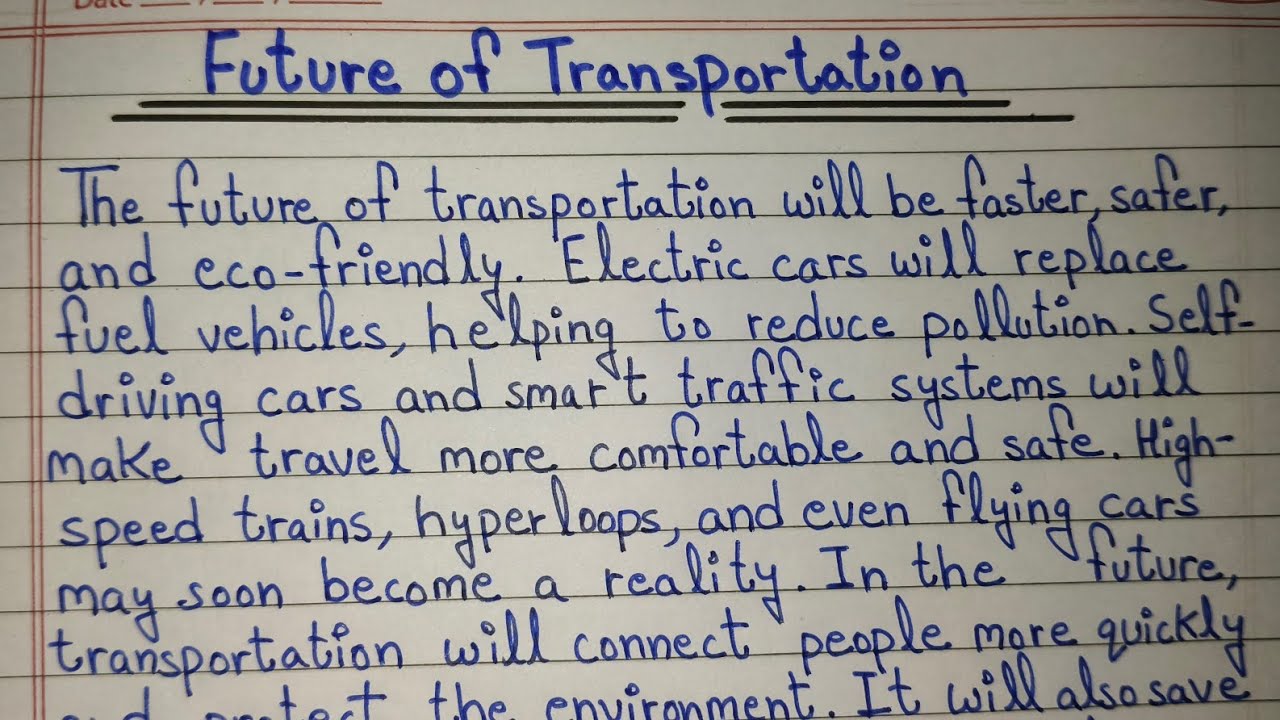 Date
Future of Transportation
The future of transportation will be faster, safer,
and eco-friendly. Electric cars will replace
fuel vehicles, helping to reduce pollution. Self-
driving cars and smart traffic systems will
make travel more comfortable and safe. High-
speed trains, hyperloops, and even flying cars
may soon become a reality. In the future,
transportation will connect people more quickly
and protect the environment. It will also save